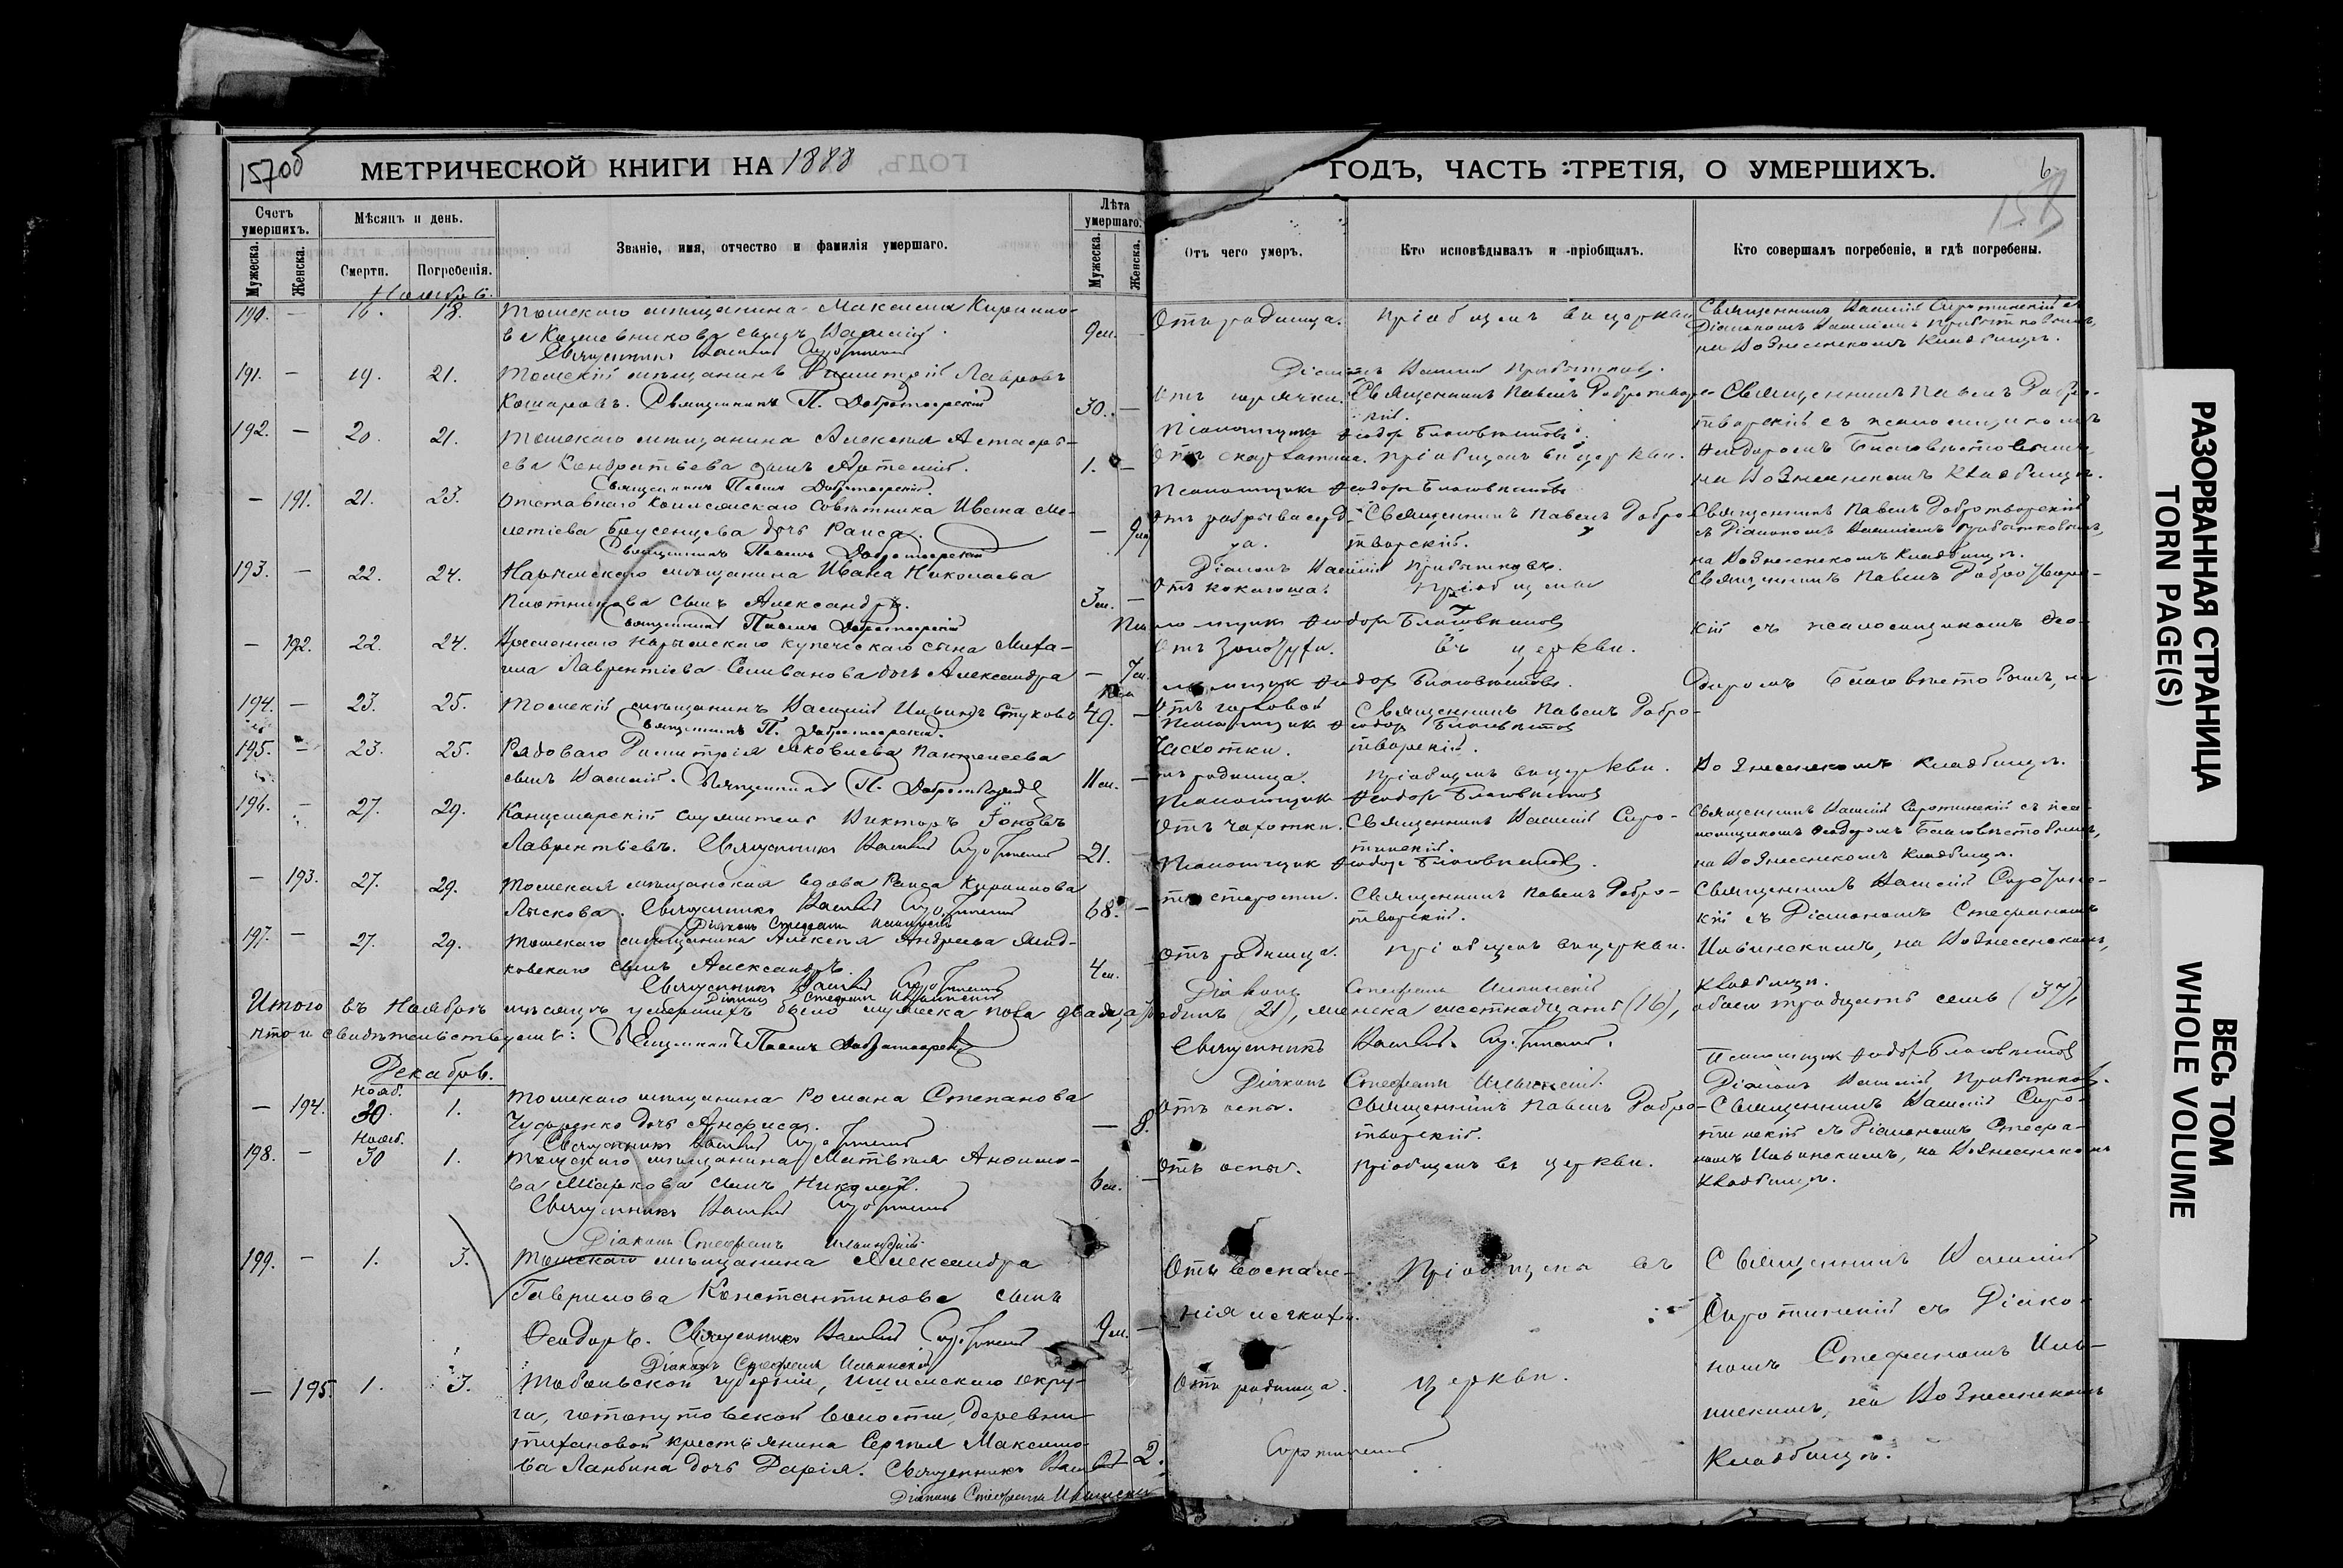 15700
МЕТРИЧЕСКОЙ КНИГИ НА 1888
ГОДЪ, ЧАСТЬ ТРЕТІЯ, О УМЕРШИХЪ.
Счетъ умершихъ.
Мужеска.
Женска.
Мѣсяцъ и день.
Смерти.
Погребенія.
Званіе, имя, отчество и фамилія умершаго.
Лѣта умершаго.
Мужеска.
Женска.
Отъ чего умеръ.
Кто исповѣдывалъ и пріобщалъ.
Кто совершалъ погребеніе, и гдѣ погребены.
Ноябрь.
190. — 16. 18. Томскаго мѣщанина Максима Кирилло-
ва Кожевникова сынъ Василій. 9 м. —
Отъ родимца. Пріобщенъ въ церкви
Священникъ Василій Сиротинскій съ
Діакономъ Василіемъ Прибытковымъ,
на Вознесенскомъ Кладбищѣ.
Священникъ Василій Сиротинскій
Діаконъ Василій Прибытковъ.
191. — 19. 21. Томскій мѣщанинъ Димитрій Лавровъ
Кошаровъ. Священникъ П. Добротворскій 30. —
Отъ горячки. Священникъ Павелъ Добротвор-
скій.
Священникъ Павелъ Добро-
творскій съ псаломщикомъ
Псаломщикъ Ѳеодоръ Благовѣстовъ
192. — 20. 21. Томскаго мѣщанина Алексѣя Астафь-
ева Кондратьева сынъ Артемій. 1. —
Отъ скарлатины. Пріобщенъ въ церкви.
Ѳеодоромъ Благовѣстовымъ,
на Вознесенскомъ Кладбищѣ.
Священникъ Павелъ Добротворскій.
Псаломщикъ Ѳеодоръ Благовѣстовъ
— 191. 21. 23. Отставнаго Коллежскаго Совѣтника Ивана Ме-
летіева Брусенцева дочь Раиса. —
Отъ разрыва серд-
ца.
Священникъ Павелъ Добро-
творскій.
Священникъ Павелъ Добротворскій
съ Діакономъ Василіемъ Прибытковымъ,
на Вознесенскомъ Кладбищѣ.
Священникъ Павелъ Добротворскій
Діаконъ Василій Прибытковъ.
193. — 22. 24. Нарымскаго мѣщанина Ивана Николаева
Плотникова сынъ Александръ. 3 м. —
Отъ коклюша. Пріобщены
Священникъ Павелъ Добротворс-
кій съ псаломщикомъ Ѳео-
Священникъ Павелъ Добротворскій
Псаломщикъ Ѳеодоръ Благовѣстовъ
— 192. 22. 24. Временнаго Нарымскаго купеческаго сына Миха-
ила Лаврентіева Селиванова дочь Александра — 7 м.
Отъ золотухи. въ церкви.
Псаломщикъ Ѳеодоръ Благовѣстовъ.
доромъ Благовѣстовымъ, на
194. — 23. 25. Томскій мѣщанинъ Василій Ильинъ Стуковъ 49. —
Отъ горловой
чахотки.
Священникъ Павелъ Добро-
творскій.
Священникъ П. Добротворскій.
Псаломщикъ Ѳеодоръ Благовѣстовъ
195. — 23. 25. Рядоваго Димитрія Яковлева Пантелеева
сынъ Василій. Священникъ П. Добротворскій 11 м. —
Отъ родимца. Пріобщенъ въ церкви. Вознесенскомъ Кладбищѣ.
Псаломщикъ Ѳеодоръ Благовѣстовъ
196. — 27. 29. Канцелярскій служитель Викторъ Іоновъ
Лаврентьевъ. Священникъ Василій Сиротинскій 21. —
Отъ чахотки. Священникъ Василій Сиро-
тинскій.
Священникъ Василій Сиротинскій съ пса-
ломщикомъ Ѳеодоромъ Благовѣстовымъ,
на Вознесенскомъ Кладбищѣ.
Псаломщикъ Ѳеодоръ Благовѣстовъ.
— 193. 27. 29. Томская мѣщанская вдова Раиса Кириллова
Лыскова. Священникъ Василій Сиротинскій 68. —
Отъ старости. Священникъ Павелъ Добро-
творскій.
Священникъ Василій Сиротинс-
кій съ Діакономъ Стефаномъ
Діаконъ Стефанъ Ильинскій
197. — 27. 29. Томскаго мѣщанина Алексѣя Андреева
ковскаго сынъ Александръ. 4 м.
Отъ родимца. Пріобщенъ въ церкви.
Ильинскимъ, на Вознесенскомъ,
Кладбищѣ.
Священникъ Василій Сиротинскій
Діаконъ Стефанъ Ильинскій
Діаконъ Стефанъ Ильинскій
Итого въ Ноябрѣ мѣсяцѣ умершихъ было мужеска пола двадцать одинъ (21), женска шестнадцать (16), обоего тридцать семь (37),
что и свидѣтельствуемъ: Священникъ Павелъ Добротворскій
Священникъ Василій Сиротинскій.
Псаломщикъ Ѳеодоръ Благовѣстовъ
Діаконъ Стефанъ Ильинскій.
Діаконъ Василій Прибытковъ.
Декабрь.
— 194. Нояб. 30. 1. Томскаго мѣщанина Романа Степанова
дочь Анфиса. — 8.
Отъ оспы. Священникъ Павелъ Добро-
творскій.
Священникъ Василій Сиро-
тинскій съ Діакономъ Стефа-
Священникъ Василій Сиротинскій
198. — Нояб. 30 1. Томскаго мѣщанина Матвѣя Анфимо-
ва Маркова сынъ Николай. 6 м. —
Отъ оспы. Пріобщенъ въ церкви.
номъ Ильинскимъ, на Вознесенскомъ
Кладбищѣ.
Священникъ Василій Сиротинскій
Діаконъ Стефанъ Ильинскій
199. — 1. 3. Томскаго мѣщанина Александра
Гаврилова Константинова сынъ
Ѳеодоръ. Священникъ Василій Сиротинскій 9 м. —
Отъ воспале-
нія легкихъ.
Пріобщены въ
Священникъ Василій
Сиротинскій съ Діако-
Діаконъ Стефанъ Ильинскій
— 195. 1. 3. Тобольской губерніи, Ишимскаго окру-
га, Готопутовской волости, деревни
Тихановой крестьянина Сергѣя Максимо-
ва Ланбина дочь Дарія. Священникъ Василій 2.
Отъ родимца. церкви.
Сиротинскій
номъ Стефаномъ Иль-
инскимъ, на Вознесенскомъ
Кладбищѣ.
Діаконъ Стефанъ Ильинскій
РАЗОРВАННАЯ СТРАНИЦА
TORN PAGE(S)
ВЕСЬ ТОМ
WHOLE VOLUME